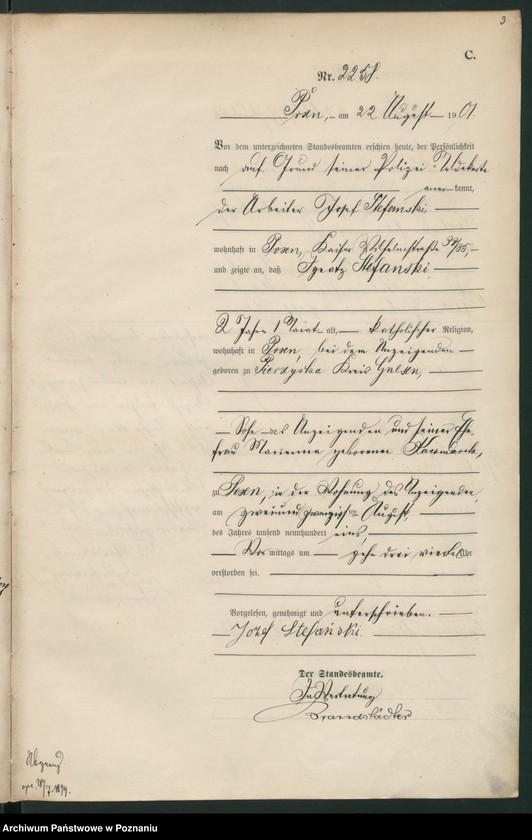 3
C.
Nr. 2258.
Posen, am 22 August 1901.
Vor dem unterzeichneten Standesbeamten erschien heute, der Persönlichkeit
nach auf Grund seiner Polizei-Meldekarte
anerkannt,
der Arbeiter Josef Stefanski,
wohnhaft in Posen, Kaiser Wilhelmstraße
und zeigte an, daß Ignatz Stefanski,
2 Jahre 1 Monat alt, katholischer Religion,
wohnhaft in Posen, bei dem Anzeigenden
geboren zu Kreis
Sohn des Anzeigenden und seiner Ehe-
frau Marianna geborenen
zu Posen, in der Wohnung des Anzeigenden,
am zweiundzwanzigsten August
des Jahres tausend neunhundert eins,
Vor mittags um zehn drei viertel Uhr
verstorben sei.
Vorgelesen, genehmigt und unterschrieben.
Jozef Stefański.
Der Standesbeamte.
In Vertretung
Brandstädter
7. 1899.
Archiwum Państwowe w Poznaniu